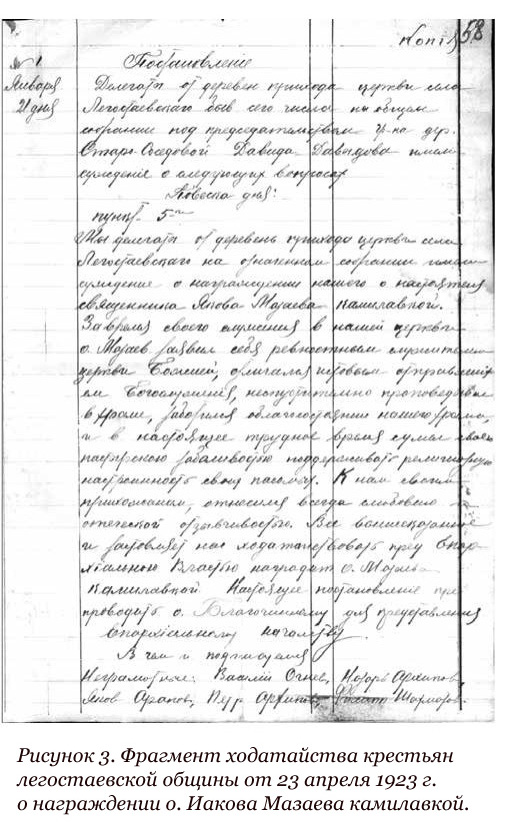 Копія 58
№ 1 Постановленіе
Января Делегаты от деревен прихода церкви села
21 дня Легостаевскаго быв сего числа на общем
собрании под председательством гр-на дер.
Старо-Соседовой Давида Давыдова имели
суждение о следующих вопросах
Повеска дня:
пункт 5
Мы делегаты от деревень прихода церкви села
Легостаевскаго на означенном собрании имели
суждение о награждении нашего о настоятеля
священника Якова Мазаева камилавкой.
За время своего служения в нашей церкви
о. Мазаев заявил себя ревностным служителем
церкви Божией, отличался истовым отправлением
Богослужений, неопустительно проповедывал
в храме, заботился о благосостоянии нашего храма,
и в настоящее трудное время сумел своей
пастырскою заботливостью поддерживать религиозную
настроенность своих пасомых. К нам своим
прихожанам, относился всегда с любовью
отеческой отзывчивостью. Все вышесказанное
и заставляет нас ходатайствовать пред Епар-
хіальною Властью наградить о. Мазаева
камилавкой Настоящее постановление пре-
проводить о. Благочинному для представления
Епархіальному начальству
В чем и подписуемся
Неграмотные: Василій Огнев, Назарь Архипов
Яков Арапов, Петр Архипов, Филипп Шарапов.
Рисунок 3. Фрагмент ходатайства крестьян
легостаевской общины от 23 апреля 1923 г.
о награждении о. Иакова Мазаева камилавкой.